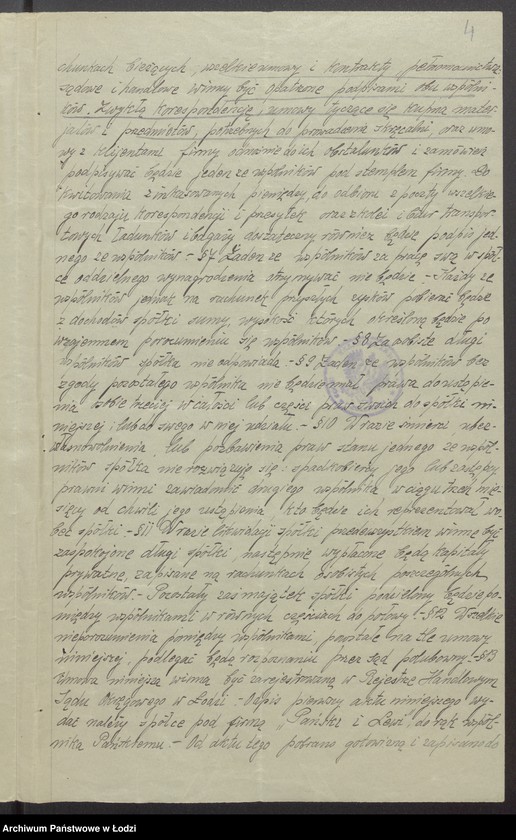 4
chunkach bieżących, wszelkie umowy i kontrakty, pełnomocnictwa
sądowe i handlowe winny być opatrzone podpisami obu wspólni-
ków. Zwykłą korespondencję, umowy tyczące się kupna mater-
jałów i przedmiotów, potrzebnych do prowadzenia skręcalni, oraz umo-
wy z klijentami firmy odnośnie do ich obstalunków i zamówień
podpisywać będzie jeden ze wspólników pod stemplem firmy. Do
kwitowania zinkasowanych pieniędzy, do odbioru z poczty wszelkie-
go rodzaju korespondencji i przesyłek oraz z kolei i biur transpor-
towych ładunków i bagaży dostateczny również będzie podpis jed-
nego ze wspólników. - §7 Żaden ze wspólników za pracę swą w spół-
ce oddzielnego wynagrodzenia otrzymywać nie będzie. - Każdy ze
wspólników jednak na rachunek przyszłych zysków pobierać będzie
z dochodów spółki sumy, wysokość których określoną będzie po
wzajemnem porozumieniu się wspólników. - §8 Za osobiste długi
wspólników spółka nie odpowiada. - §9 Żaden ze wspólników bez
zgody pozostałego wspólnika nie będzie miał prawa do ustąpie-
nia osobie trzeciej w całości lub części praw swoich do spółki ni-
niejszej lub do swego w niej udziału. - §10 W razie śmierci, ubez-
własnowolnienia lub pozbawienia praw stanu jednego ze wspól-
ników spółka nie rozwiązuje się: spadkobiercy jego lub zastępcy
prawni winni zawiadomić drugiego wspólnika w ciągu trzech mie-
sięcy od chwili jego ustąpienia kto będzie ich reprezentował wo-
bec spółki. - §11 W razie likwidacji spółki przedewszystkiem winne być
zaspokojone długi spółki następnie wypłacone będą kapitały
prywatne, zapisane na rachunkach osobistych poszczególnych
wspólników. - Pozostały zaś majątek spółki podzielony będzie po-
między wspólnikami w równych częściach do połowy. - §12 Wszelkie
nieporozumienia pomiędzy wspólnikami, powstałe na tle umowy
niniejszej, podlegać będą rozpoznaniu przez sąd polubowny. - §13
Umowa niniejsza winna być zarejestrowaną w Rejestrze Handlowym
Sądu Okręgowego w Łodzi. - Odpis pierwszy aktu niniejszego wy-
dać należy spółce pod firmą „ i Lewi, do rąk wspól-
nika - Od aktu tego pobrano gotowizną i zapisano do
Archiwum Państwowe w Łodzi